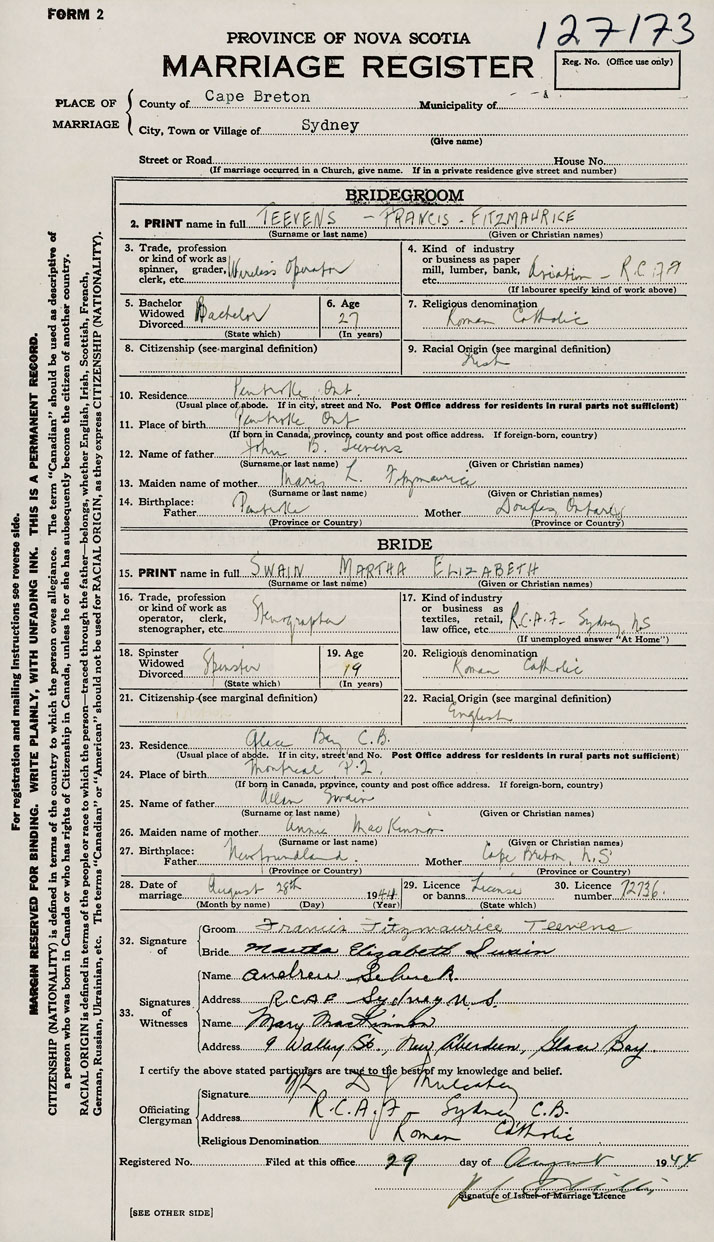 FORM 2
127173
PROVINCE OF NOVA SCOTIA
MARRIAGE REGISTER
Reg. No. (Office use only)
PLACE OF MARRIAGE
County of Cape Breton Municipality of
City, Town or Village of Sydney
(Give name)
Street or Road House No.
(If marriage occurred in a Church, give name. If in a private residence give street and number)
BRIDEGROOM
2. PRINT name in full TEEVENS - FRANCIS - FITZMAURICE
(Surname or last name) (Given or Christian names)
3. Trade, profession or kind of work as spinner, grader, clerk, etc. Wireless Operator
4. Kind of industry or business as paper mill, lumber, bank, etc. Aviation - R.C.A.F
(If labourer specify kind of work above)
5. Bachelor Widowed Divorced Bachelor
(State which)
6. Age 27
(In years)
7. Religious denomination
Roman Catholic
8. Citizenship (see marginal definition)
9. Racial Origin (see marginal definition)
Irish
10. Residence Pembroke, Ont.
(Usual place of abode. If in city, street and No. Post Office address for residents in rural parts not sufficient)
11. Place of birth Pembroke Ont
(If born in Canada, province, county and post office address. If foreign-born, country)
12. Name of father John B. Teevens
(Surname or last name) (Given or Christian names)
13. Maiden name of mother Marie L. Fitzmaurice
(Surname or last name) (Given or Christian names)
14. Birthplace: Father Pembroke Mother Douglas Ontario
(Province or Country) (Province or Country)
BRIDE
15. PRINT name in full SWAIN MARTHA ELIZABETH
(Surname or last name) (Given or Christian names)
16. Trade, profession or kind of work as operator, clerk, stenographer, etc. Stenographer
17. Kind of industry or business as textiles, retail, law office, etc. R.C.A.F - Sydney, N.S
(If unemployed answer "At Home")
18. Spinster Widowed Divorced Spinster
(State which)
19. Age 19
(In years)
20. Religious denomination
Roman Catholic
21. Citizenship (see marginal definition)
22. Racial Origin (see marginal definition)
English
23. Residence Glace Bay C.B.
(Usual place of abode. If in city, street and No. Post Office address for residents in rural parts not sufficient)
24. Place of birth Montreal P.Q.
(If born in Canada, province, county and post office address. If foreign-born, country)
25. Name of father Allan Swain
(Surname or last name) (Given or Christian names)
26. Maiden name of mother Annie MacKinnon
(Surname or last name) (Given or Christian names)
27. Birthplace: Father Newfoundland. Mother Cape Breton, N.S
(Province or Country) (Province or Country)
28. Date of marriage August 28th 1944
(Month by name) (Day) (Year)
29. Licence or banns License
(State which)
30. Licence number 72736.
32. Signature of
Groom Francis Fitzmaurice Teevens
Bride Martha Elizabeth Swain
33. Signatures of Witnesses
Name Andrew
Address R.C.A.F Sydney N.S.
Name Mary MacKinnon
Address 9 St., New Aberdeen, Glace Bay.
I certify the above stated particulars are true to the best of my knowledge and belief.
Officiating Clergyman
Signature
Address R.C.A.F - Sydney C.B.
Religious Denomination Roman Catholic
Registered No. Filed at this office 29 day of August 1944
Signature of Issuer of Marriage Licence
[SEE OTHER SIDE]
For registration and mailing instructions see reverse side.
MARGIN RESERVED FOR BINDING. WRITE PLAINLY, WITH UNFADING INK. THIS IS A PERMANENT RECORD.
CITIZENSHIP (NATIONALITY) is defined in terms of the country to which the person owes allegiance. The term "Canadian" should be used as descriptive of
a person who was born in Canada or who has rights of Citizenship in Canada, unless he or she has subsequently become the citizen of another country.
RACIAL ORIGIN is defined in terms of the people or race to which the person—traced through the father—belongs, whether English, Irish, Scottish, French,
German, Russian, Ukrainian, etc. The terms "Canadian" or "American" should not be used for RACIAL ORIGIN, as they express CITIZENSHIP (NATIONALITY).